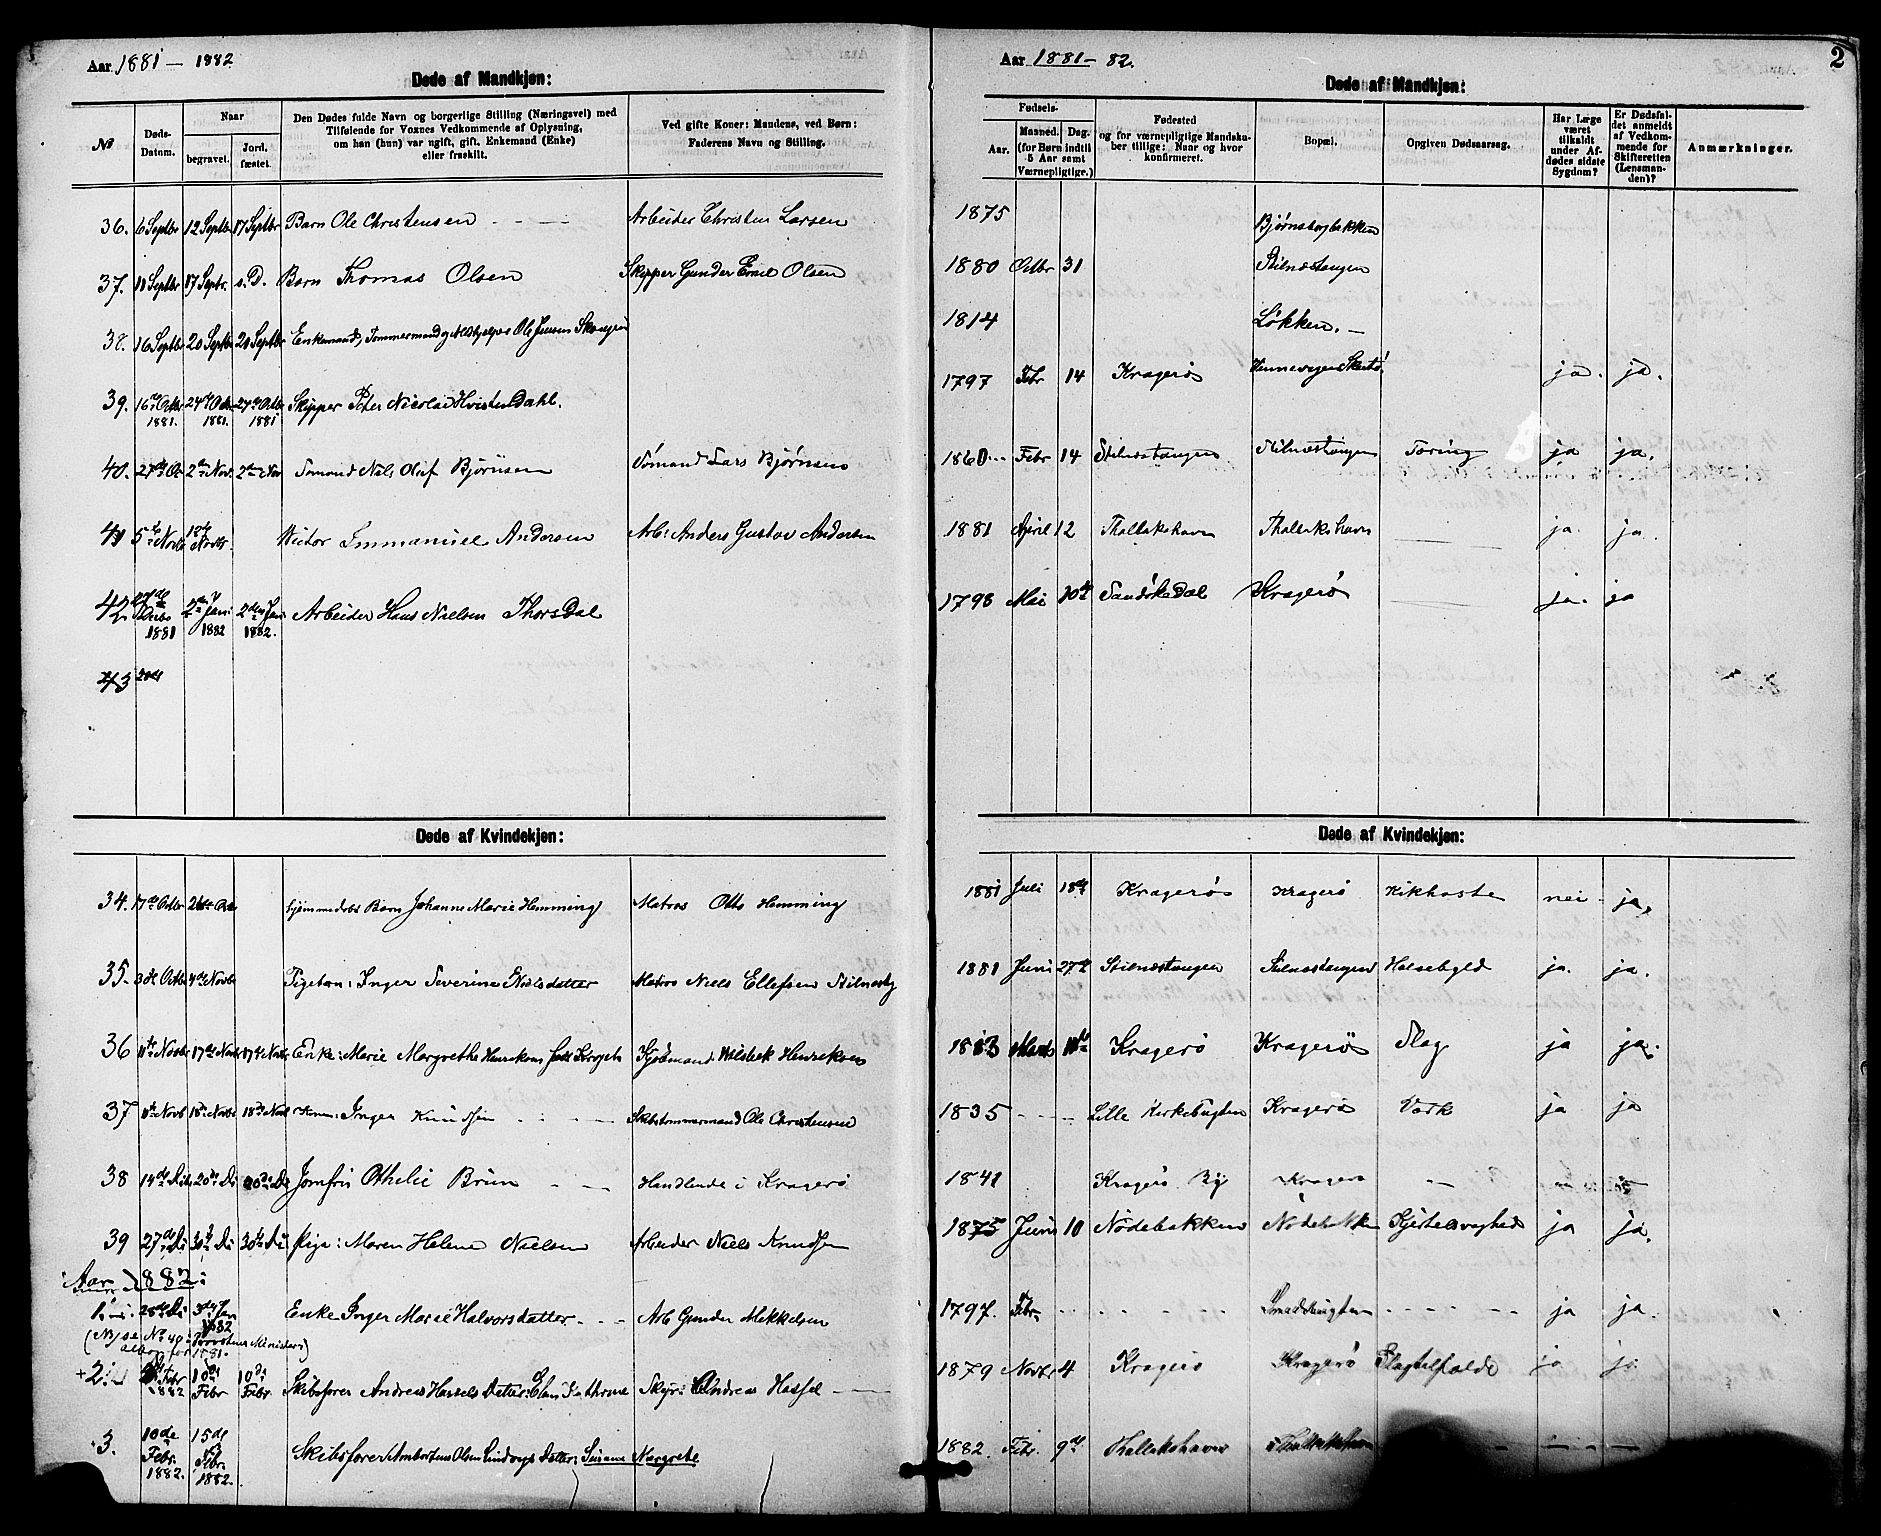 Aar 1881 – 1882
Døde af Mandkjøn:
№
Døds-Datum.
Naar
begravet.
Jord, fæstet.
Den Dødes fulde Navn og borgerlige Stilling (Næringsvei) med
Tilføiende for Voxnes Vedkommende af Oplysning,
om han (hun) var ugift, gift, Enkemand (Enke)
eller fraskilt.
Ved gifte Koner: Mandens, ved Børn:
Faderens Navn og Stilling.
36. 6 Septbr 12 Septbr 17 Septbr Barn Ole Christensen Arbeider Christen Larsen
37. 11 Septbr 17 Septbr. s. D. Barn Thomas Olsen Skipper Gunder Emil Olsen
38. 16 Septbr 20 Septbr 20 Septbr Enkemand, Tømmermand Ole Jensen
39. 16de Octbr 24de Octbr 27de Octbr Skipper Peter Nicolai Hvistendahl.
1881. 1881. 1881
40. 27de Oct 2den Novb. 2den Nov Sømand Niels Oluf Bjørnsen Sømand Lars Bjørnsen
41 5te Novbr 10de Novbr. Victor Immanuel Andersen Arb: Anders Gustav Andersen
42 27de Decbr 2den Jan: 2den Jan Arbeider Hans Nielsen Thorsdal
1881 1882 1882.
43 20de
Døde af Kvindekjøn:
34. 17de Octbr Hjemmedøbt Barn Johanne Marie Hemming Matros Otto Hemming
35. Octbr 4de Novbr Pigebarn: Inger Severine Nielsdatter Matros Niels Ellefsen Stilnesby
36 11te Novbr 17de Novb 17de Novb Enke: Marie Margrethe Henriksen født Henriksen
37 11te Novb 18de Novb 18de Nov Kone: Inger Knudsen Skibstømmermand Ole Christensen
38 14de De 20de De 20de De Jomfru Othelie Brun Handlende i Kragerø
39 27de De 30te De 30te De Pige: Maren Helene Nielsen Arbeider Niels Knudsen
Aar 1882:
1. 28de De 3die Jan 1882 Enke Inger Marie Halvorsdatter Arb Gunder Mikkelsen
2. Febr 1882 10de Febr 10de Febr. Skibsfører Andreas Hassels Datter: Cathrine Skipr: Andreas Hassel
3. 10de Febr. 1882. 15de Febr. 1882. Skibsfører Olsen Datter: Susanne Margrete
Aar 1881 – 82.
2
Døde af Mandkjøn:
Fødsels-
Aar.
Maaned. Dag.
(for Børn indtil
5 Aar samt
Værnepligtige.)
Fødested
og for værnepligtige Mandskaber tillige: Naar og hvor
konfirmeret.
Bopæl.
Opgiven Dødsaarsag.
Har Læge
været
tilkaldt
under Afdødes sidste
Sygdom?
Er Dødsfaldet anmeldt
af Vedkommende for
Skifteretten
(Lensmanden)?
Anmærkninger.
1875 Bjørnsborgbakken
1880 Octbr 31 Stilnestangen
1814 Løkken.
1797 Febr 14 Kragerø ja. ja.
1860 Febr 14 Stilnestangen Stilnestangen Tæring ja ja.
1881 April 12 Thallakshavn Thallakshavn ja. ja
1798 Mai 10de Sandøkedal Kragerø ja. ja
Døde af Kvindekjøn:
1881 Juli 18de Kragerø Kragerø Kikhoste nei ja,
1881 Juni 27de Stilnestangen Stilnestangen Halsebyld ja. ja.
1813 Marts Kragerø Kragerø Slag ja ja.
1835 Lille Kirkebugten Kragerø Værk ja ja
1841 Kragerø By Kragerø
1875 Juni 10 Nødebakken Nødebakken Kjertelsvaghed ja ja.
1797. Febr. ja ja.
1879 Novbr 4 Kragerø Kragerø ja ja.
1882. Febr. 9de Thallakshavn Thallakshavn